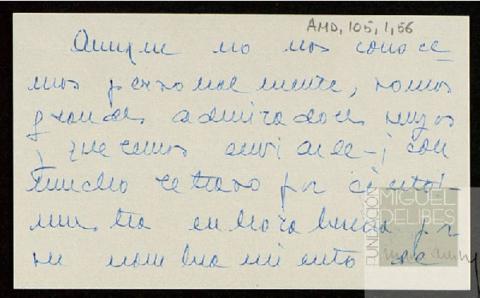 AMD, 105, 1, 56
Aunque no nos conoce-
mos personalmente, somos
grandes admiradores suyos
y queremos enviarle -¡con
mucho retraso por cierto!-
nuestra enhorabuena por
su nombramiento de
FUNDACIÓN
MIGUEL
DELIBES